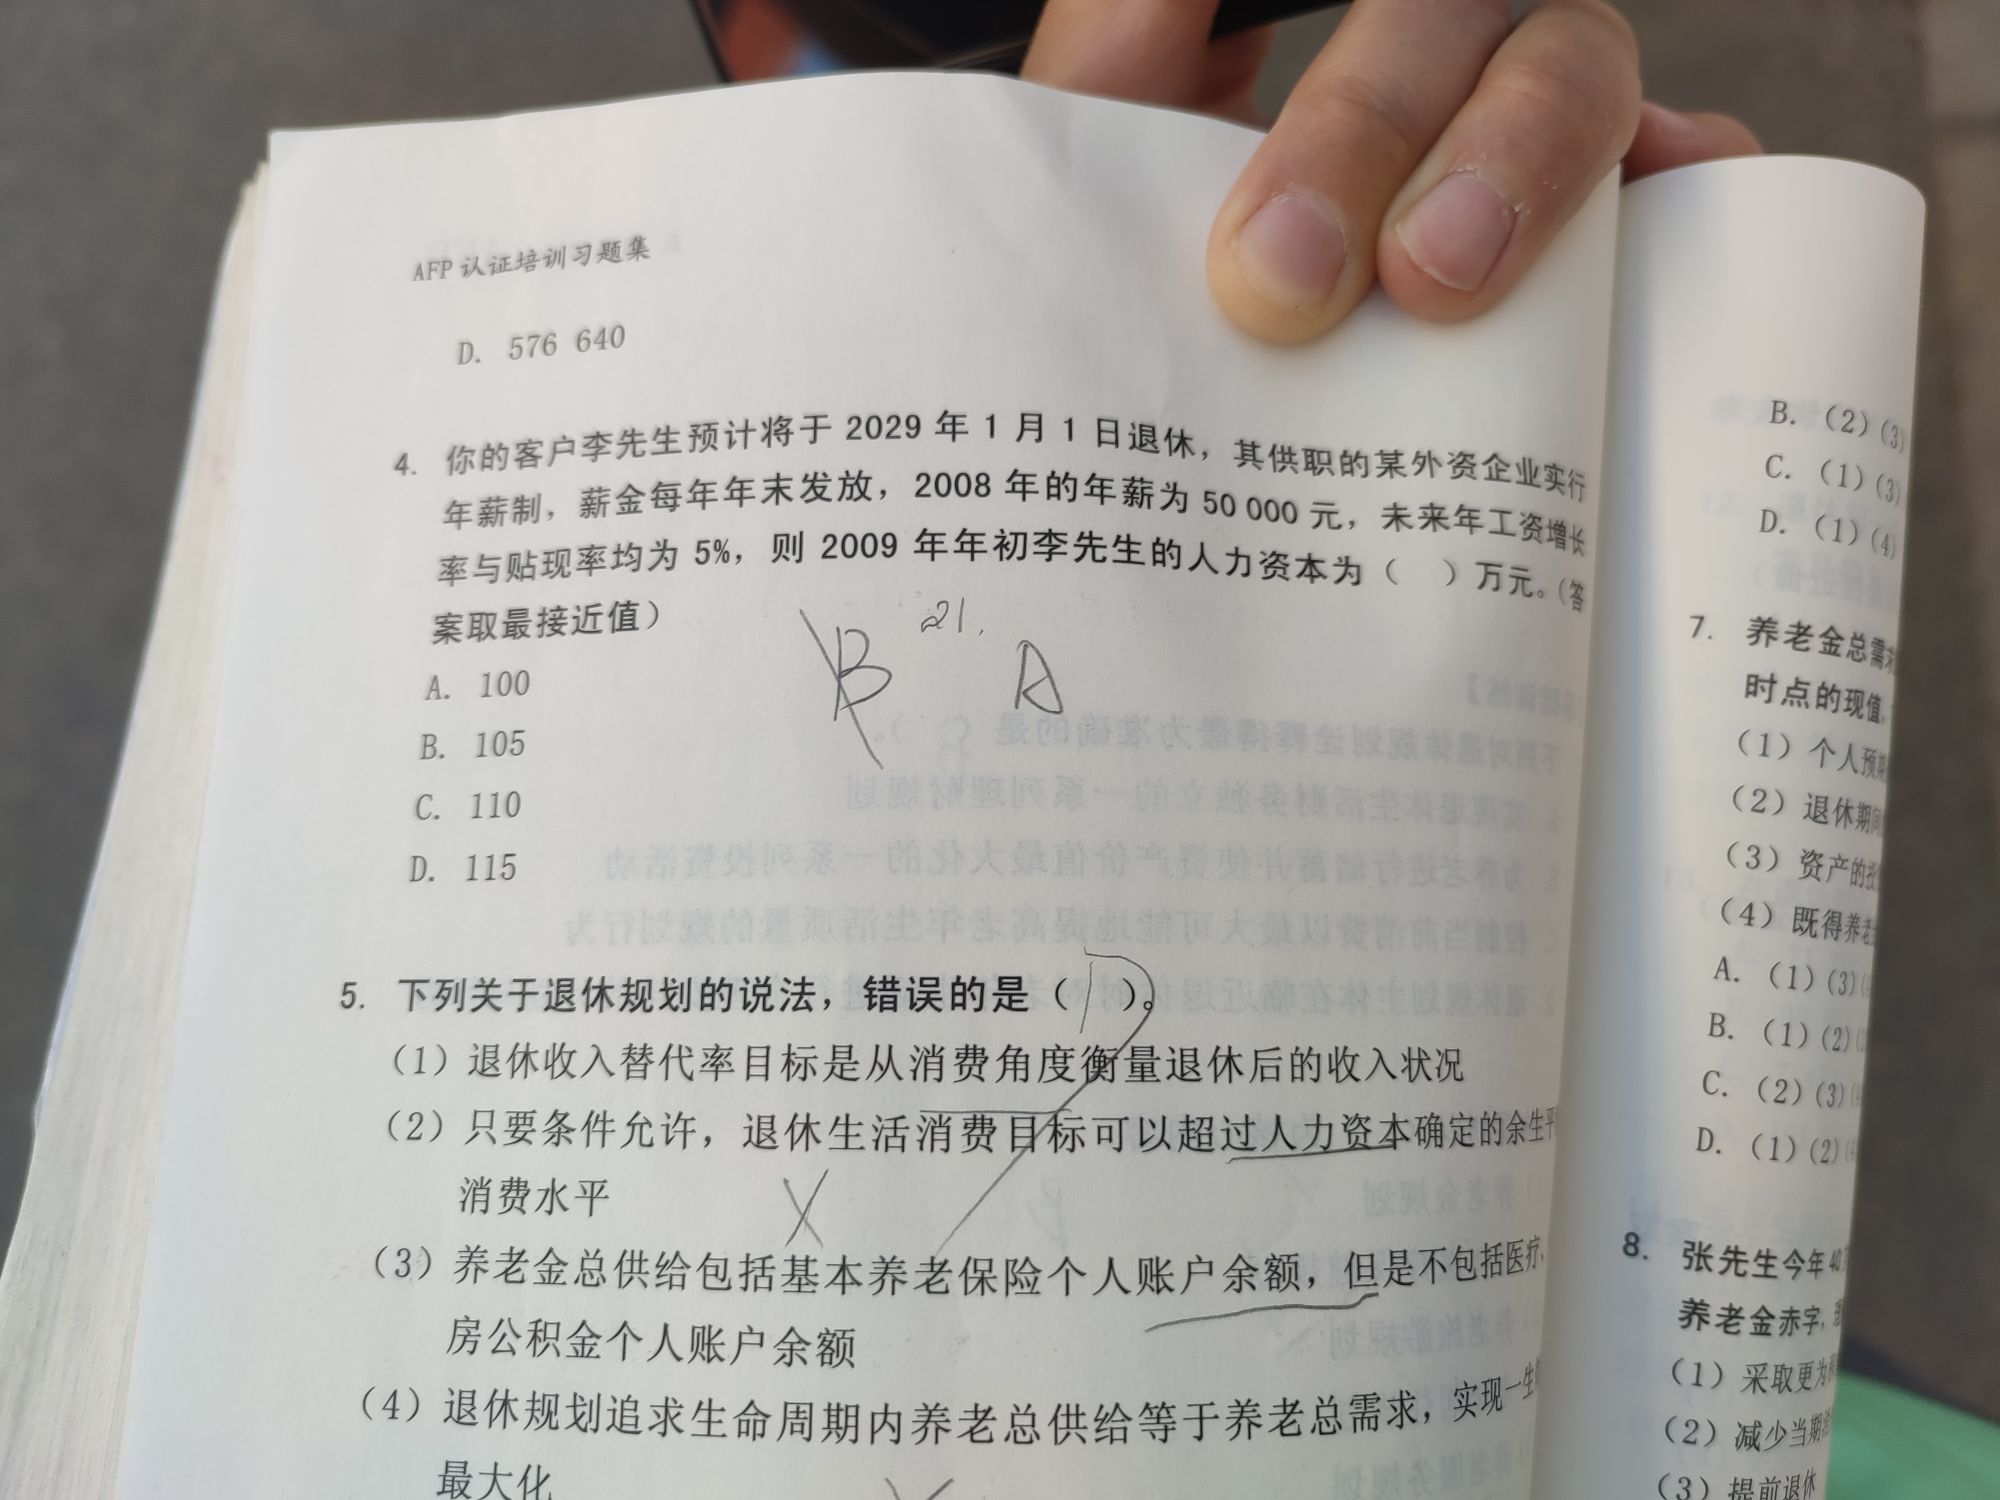 AFP 认证培训习题集
D. 576 640
4. 你的客户李先生预计将于 2029 年 1 月 1 日退休，其供职的某外资企业实行
年薪制，薪金每年年末发放，2008 年的年薪为 50 000 元，未来年工资增长
率与贴现率均为 5%，则 2009 年年初李先生的人力资本为（ ）万元。（答
案取最接近值）
B 21. A
A. 100
B. 105
C. 110
D. 115
5. 下列关于退休规划的说法，错误的是（D）。
（1）退休收入替代率目标是从消费角度衡量退休后的收入状况
（2）只要条件允许，退休生活消费目标可以超过人力资本确定的余生平
消费水平
（3）养老金总供给包括基本养老保险个人账户余额，但是不包括医疗、
房公积金个人账户余额
（4）退休规划追求生命周期内养老总供给等于养老总需求，实现一生
最大化
B. （2）（3）
C. （1）（3）
D. （1）（4）
7. 养老金总需
时点的现值，
（1）个人预期
（2）退休期间
（3）资产的投
（4）既得养老
A. （1）（3）
B. （1）（2）
C. （2）（3）
D. （1）（2）
8. 张先生今年 40
养老金赤字，
（1）采取更为
（2）减少当期
（3）提前退休